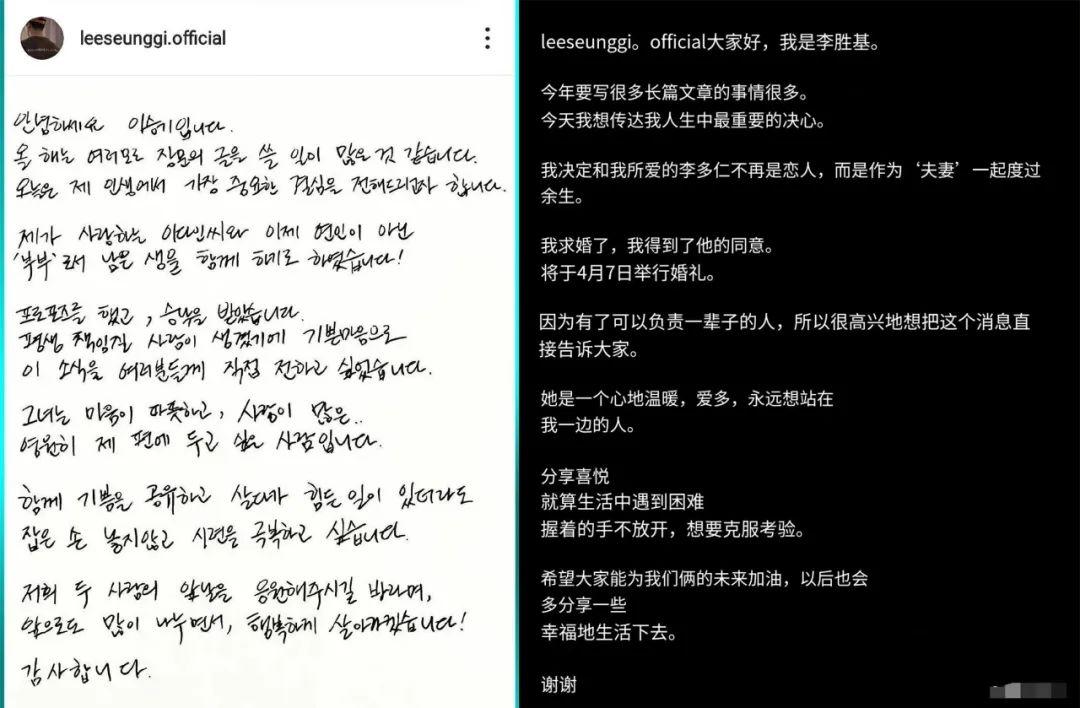 leeseunggi.official
안녕하세요 이승기입니다.
올 해는 여러모로 장문의 글을 쓸 일이 많은 것 같습니다.
오늘은 제 인생에서 가장 중요한 결심을 전해드리고자 합니다.
제가 사랑하는 이다인씨와 이제 연인이 아닌
'부부'로서 남은 생을 함께 하기로 하였습니다!
프로포즈를 했고, 승낙을 받았습니다.
평생 책임질 사람이 생겼기에 기쁜마음으로
이 소식을 여러분들께 직접 전하고 싶었습니다.
그녀는 마음이 따뜻하고, 사랑이 많은..
영원히 제 편에 두고 싶은 사람입니다.
함께 기쁨을 공유하고 살다가 힘든 일이 있더라도
잡은 손 놓지않고 시련을 극복하고 싶습니다.
저희 두 사람의 앞날을 응원해주시길 바라며,
앞으로도 많이 나누면서, 행복하게 살아가겠습니다!
감사합니다.
leeseunggi。official大家好，我是李胜基。
今年要写很多长篇文章的事情很多。
今天我想传达我人生中最重要的决心。
我决定和我所爱的李多仁不再是恋人，而是作为‘夫妻’一起度过
余生。
我求婚了，我得到了他的同意。
将于4月7日举行婚礼。
因为有了可以负责一辈子的人，所以很高兴地想把这个消息直
接告诉大家。
她是一个心地温暖，爱多，永远想站在
我一边的人。
分享喜悦
就算生活中遇到困难
握着的手不放开，想要克服考验。
希望大家能为我们俩的未来加油，以后也会
多分享一些
幸福地生活下去。
谢谢